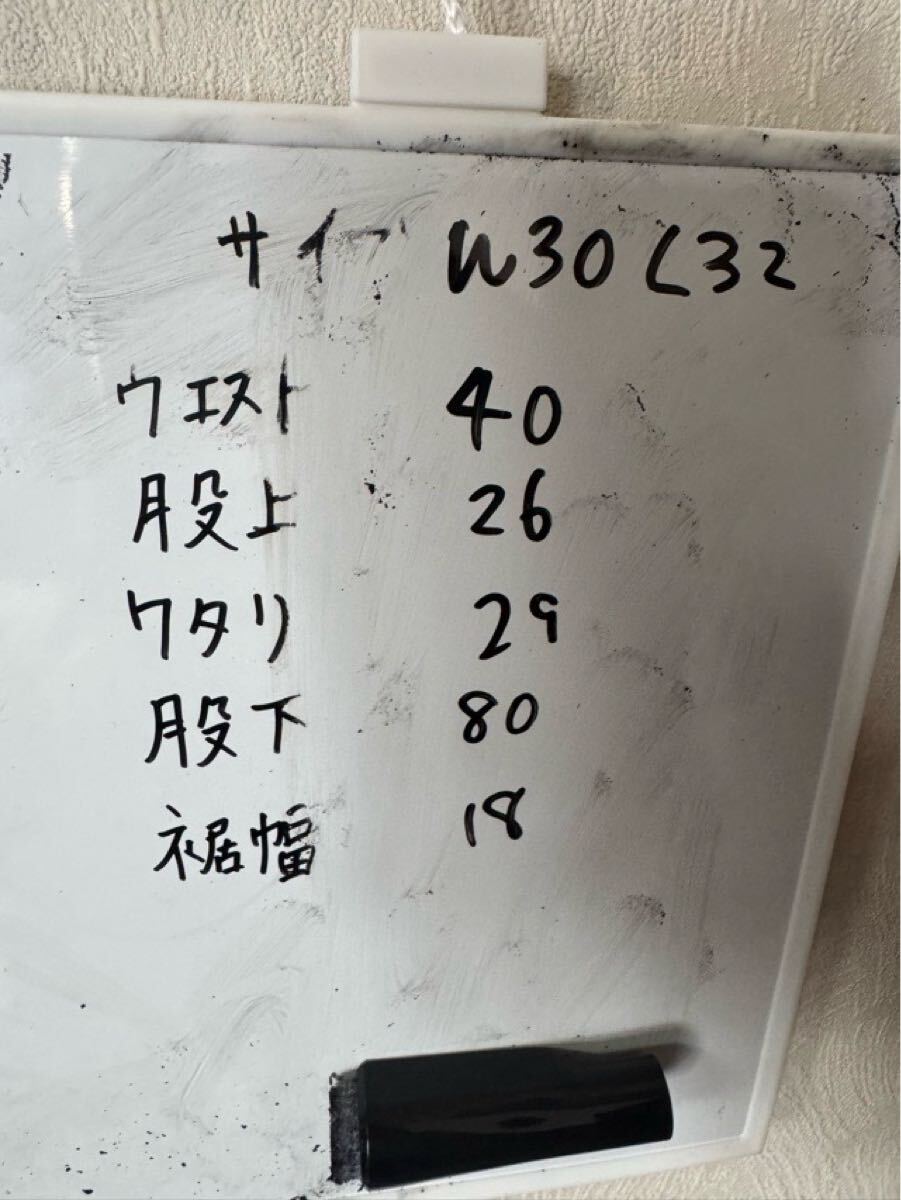 サイズ W30 L32
ウエスト 40
股上 26
ワタリ 29
股下 80
裾幅 18